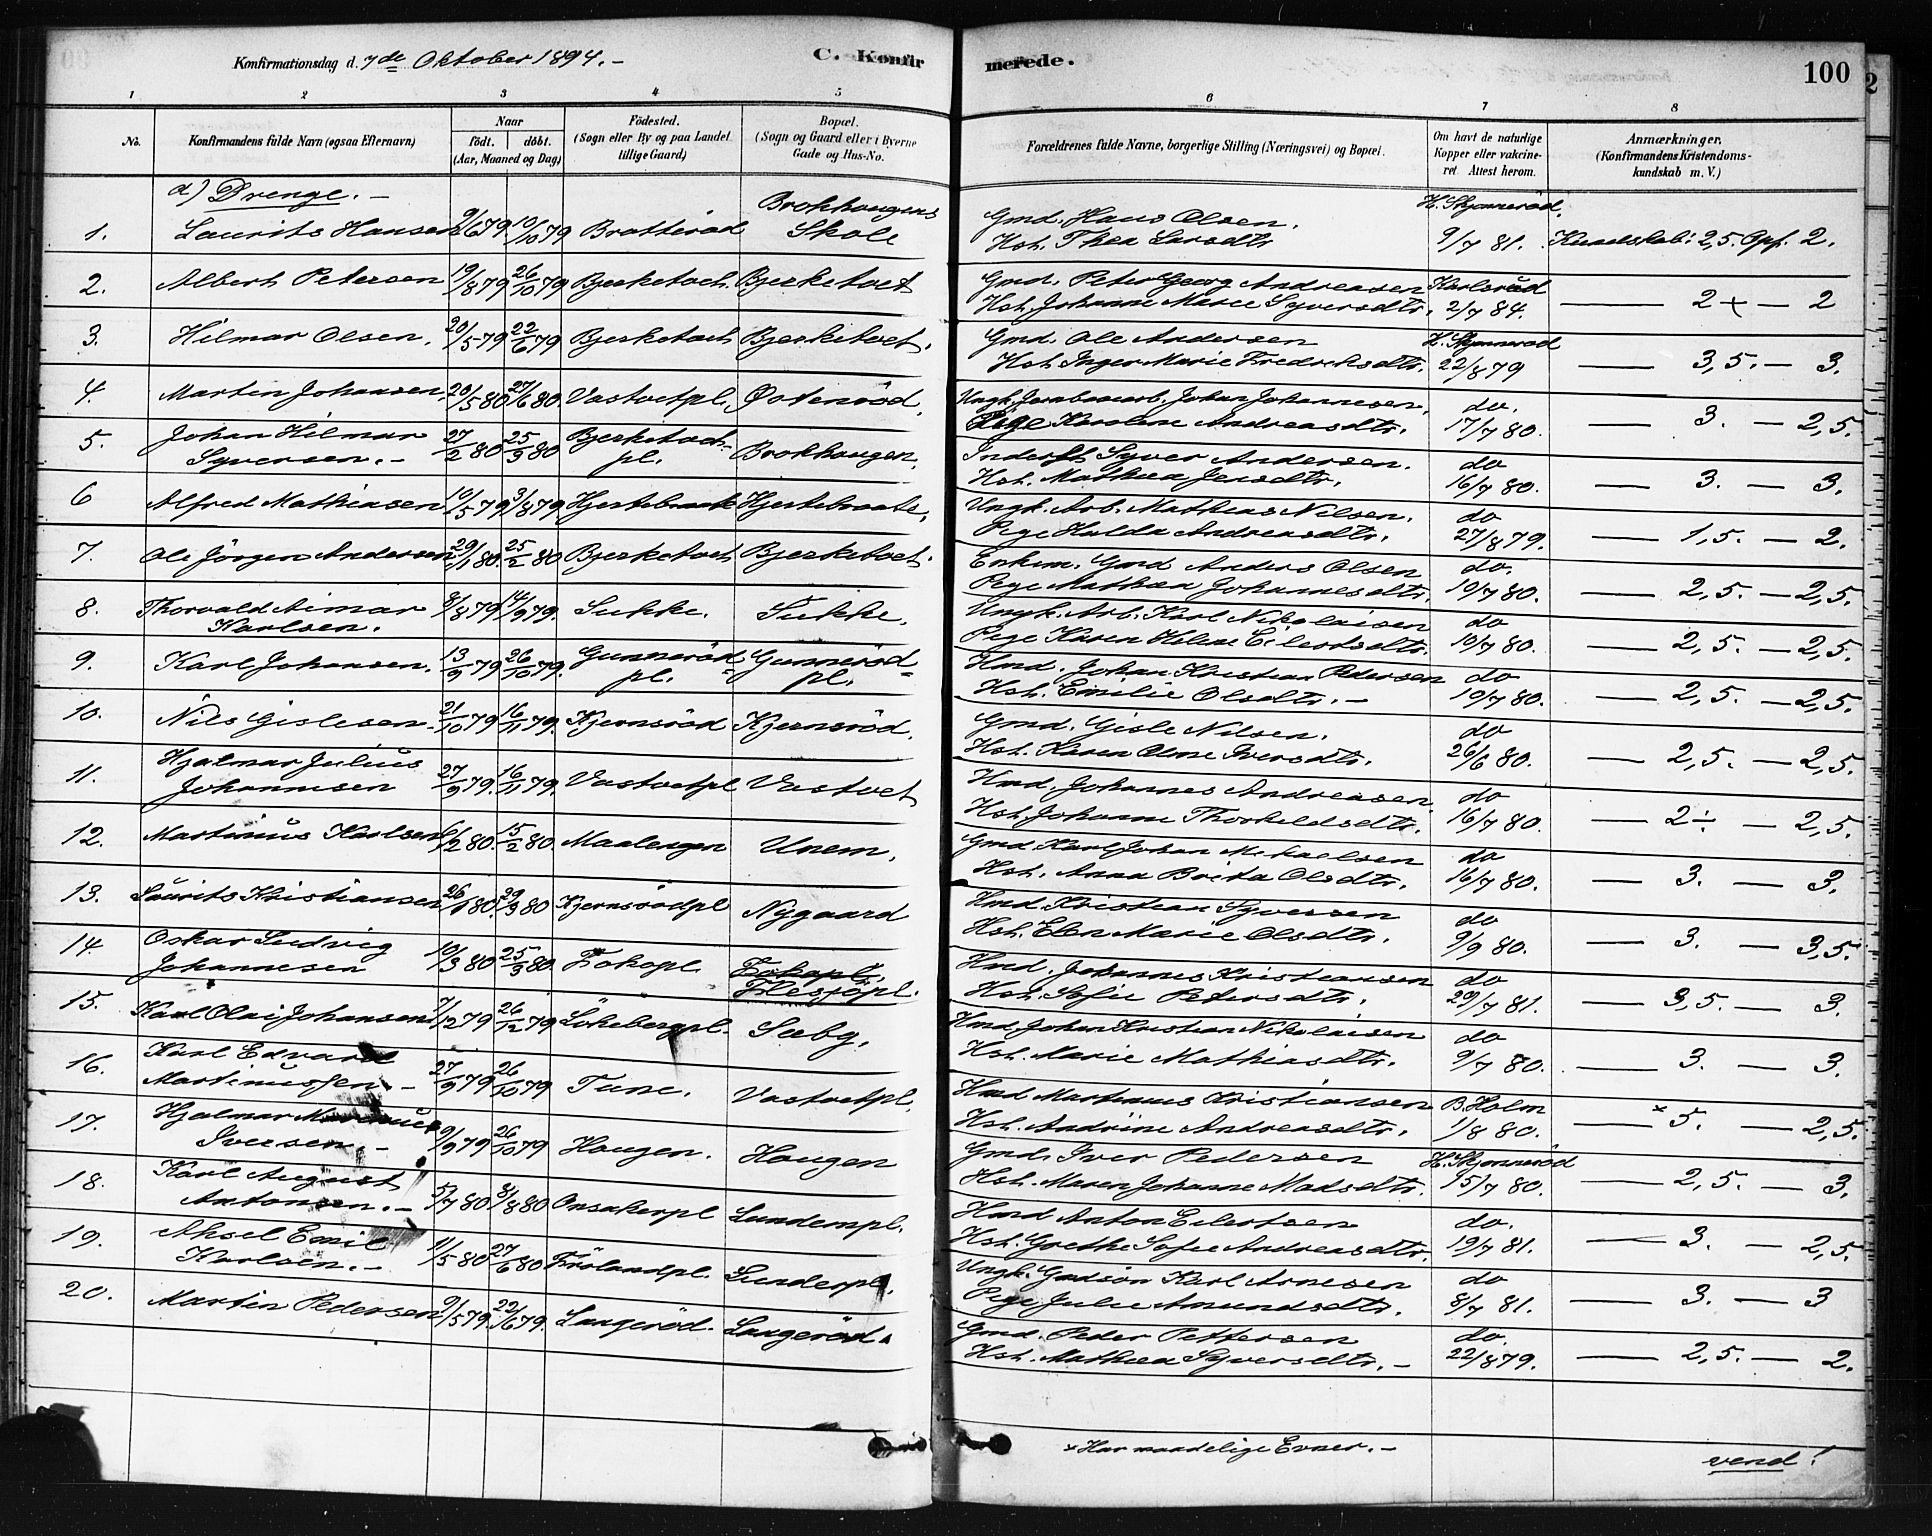 Konfirmationsdag d. 7de Oktober 1894. –
C. Konfirmerede.
100
1 2 3 4 5 6 7 8
No. Konfirmandens fulde Navn (ogsaa Efternavn) Naar födt. döbt. (Aar, Maaned og Dag) Födested. (Sogn eller By og paa Landet tillige Gaard) Bopæl. (Sogn og Gaard eller i Byerne Gade og Hus-No. Forældrenes fulde Navne, borgerlige Stilling (Næringsvei) og Bopæl. Om havt de naturlige Kopper eller vakcineret Attest herom. Anmærkninger. (Konfirmandens Kristendomskundskab m. V.)
a) Drenge. –
1. Laurits Hansen 9/6 79 19/10 79 Bratteröd Brokhougens Skole Gmd. Hans Olsen. Hst. Thea Larsdtr H. Skjönneröd. 9/7 81. Kundskab: 2,5. Opf. 2.
2. Albert Petersen 19/8 79 26/10 79 Bjerketvet Bjerketvet Gmd. Peter Georg Andreasen Hst. Johanne Marie Syversdtr. Karlsrud 2/7 84. — 2+ — 2
3. Hilmar Olsen. 20/5 79 22/6 79 Bjerketvet Bjerketvet. Gmd. Ole Andersen Hst. Inger Marie Fredriksdtr. H. Skjönneröd 22/8 79 — 3,5. — 3.
4. Martin Johansen. 20/5 80 27/6 80. Vastvetpl. Østenröd. Ungk. Jernbanearb. Johan Johannesen. Pige Karoline Andreasdtr. do. 17/7 80. — 3. — 2,5.
5. Johan Hilmar Syversen. – 27/2 80 25/3 80 Bjerketvetpl. Brokhougen. Inderst Syver Andersen. Hst. Mathea Jensdtr. do 16/7 80. — 3. — 3.
6 Alfred Mathiasen 10/5 79 3/8 79 Hjertebraate Hjertebraate. Ungk. Arb. Mathias Nilsen. Pige Hulda Andreasdtr. do 27/8 79. — 1,5. — 2.
7. Ole Jörgen Andersen 29/1 80. 25/2 80 Bjerketvet Bjerketvet. Enkem. Gmd Anders Olsen Pige Mathea Johannesdtr. do. 19/7 80. — 2,5. — 2,5.
8. Thorvald Aimar Karlsen. 8/8 79 14/9 79. Sukke. Sukke. Ungk. Arb. Karl Nikolaisen Pige Karen Helene Eilertsdtr. do 19/7 80. — 2,5. — 2,5.
9. Karl Johansen. 13/9 79 26/10 79. Gunneröd pl. Gunneröd pl. Hmd. Johan Kristian Pedersen Hst. Emilie Olsdtr. – do 19/7 80. — 2,5. — 2,5.
10. Nils Gislesen. 21/10 79 16/11 79. Kjernsröd Kjernsröd. Gmd. Gisle Nilsen. Hst. Karen Olene Iversdtr. do 26/6 80. — 2,5. — 2,5.
11. Hjalmar Julius Johannesen 27/9 79. 16/11 79. Vastvetpl Vastvet Hmd. Johannes Andreasen. Hst. Johanne Thorkildsdtr. do 16/7 80. — 2÷ — 2,5.
12. Martinius Karlsen 6/2 80. 15/2 80. Maalengen Unem. Gmd. Karl Johan Mikaelsen Hst. Anna Brita Olsdtr. do 16/7 80. — 3. — 3.
13. Laurits Kristiansen 26/1 80. 29/3 80 Kjernsrödpl Nygaard Hmd. Kristian Syversen Hst. Elen Marie Olsdtr. do 9/9 80. — 3. — 3,5.
14. Oskar Ludvig Johannesen 10/3 80 25/3 80. Fokopl. Fokopl. Filesjöpl. Hmd. Johannes Kristiansen Hst. Sofie Petersdtr. do 29/7 81. — 3,5. — 3.
15. Karl Olai Johansen 7/12 79 26/12 79 Lökebergpl. Sæby. Hmd. Johan Kristian Nikolaisen Hst. Marie Mathiasdtr. do 9/7 80. — 3. — 3.
16. Karl Edvard Martinussen. – 27/9 79 26/10 79 Tune. Vastvetpl. Hmd Martinus Kristiansen Hst. Andrine Andreasdtr. B. Holm 1/8 80. — × 5. — 2,5.
17. Hjalmar Iversen. – 9/9 79 26/10 79 Hougen. Hougen Gmd. Iver Pedersen Hst. Maren Johanne Madsdtr. H. Skjönneröd 15/7 80. — 2,5. — 3.
18. Karl August Antonsen. – 5/7 80 8/8 80 Onsakerpl Lundempl. Hmd Anton Eilertsen Hst. Grethe Sofie Andreasdtr. do. 19/7 81. — 3. — 2,5.
19. Aksel Emil Karlsen. – 11/5 80 27/6 80 Frölandpl. Lunderpl. Ungk. Gmdsön Karl Arnesen Pige Julie Amundsdtr. do 8/7 81. — 3. — 3
20. Martin Pedersen 9/5 79. 22/6 79. Langeröd. Langeröd. Gmd. Peder Pettersen Hst. Mathea Syversdtr. – do. 22/8 79. — 2,5. — 2.
× Har maadelige Evner. –
vend!